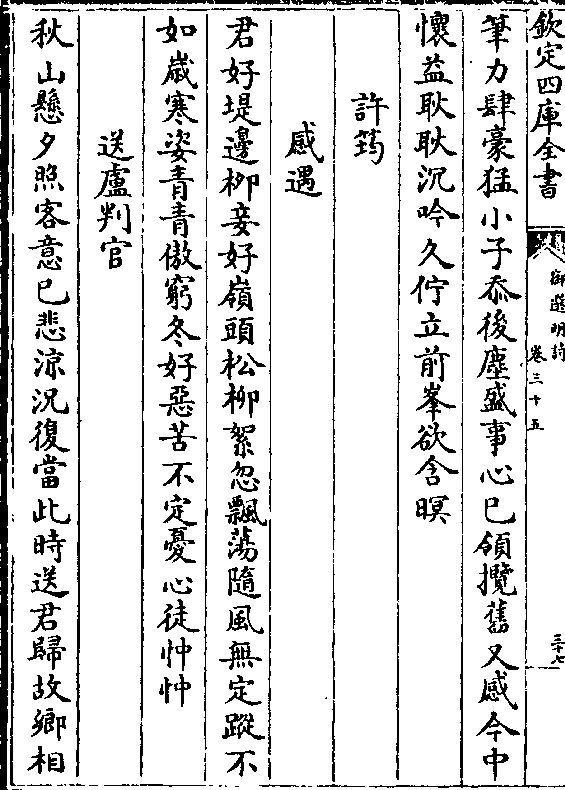 欽定四庫全書
御選明詩
卷三十五
三十七
筆力肆豪猛小子忝後塵盛事心已領攬舊又感今中
懷益耿耿沉吟久佇立前峯欲含暝
許筠
感遇
君好堤邊柳妾好嶺頭松柳絮忽飄蕩隨風無定蹤不
如歲寒姿青青傲窮冬好惡苦不定憂心徒忡忡
送盧判官
秋山懸夕照客意已悲涼況復當此時送君歸故鄉相